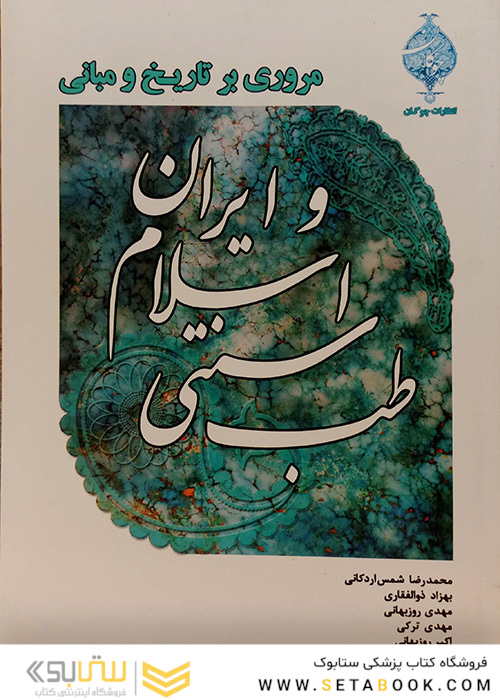 انتشارات چوگان
مروری بر تاریخ و مبانی
طب سنتی
اسلام
و ایران
محمدرضا شمس‌اردکانی
بهزاد ذوالفقاری
مهدی روزبهانی
مهدی ترکی
اکبر روزبهانی
فروشگاه کتاب پزشکی ستابوک
WWW.SETABOOK.COM
ستابوک
فروشگاه اینترنتی کتاب